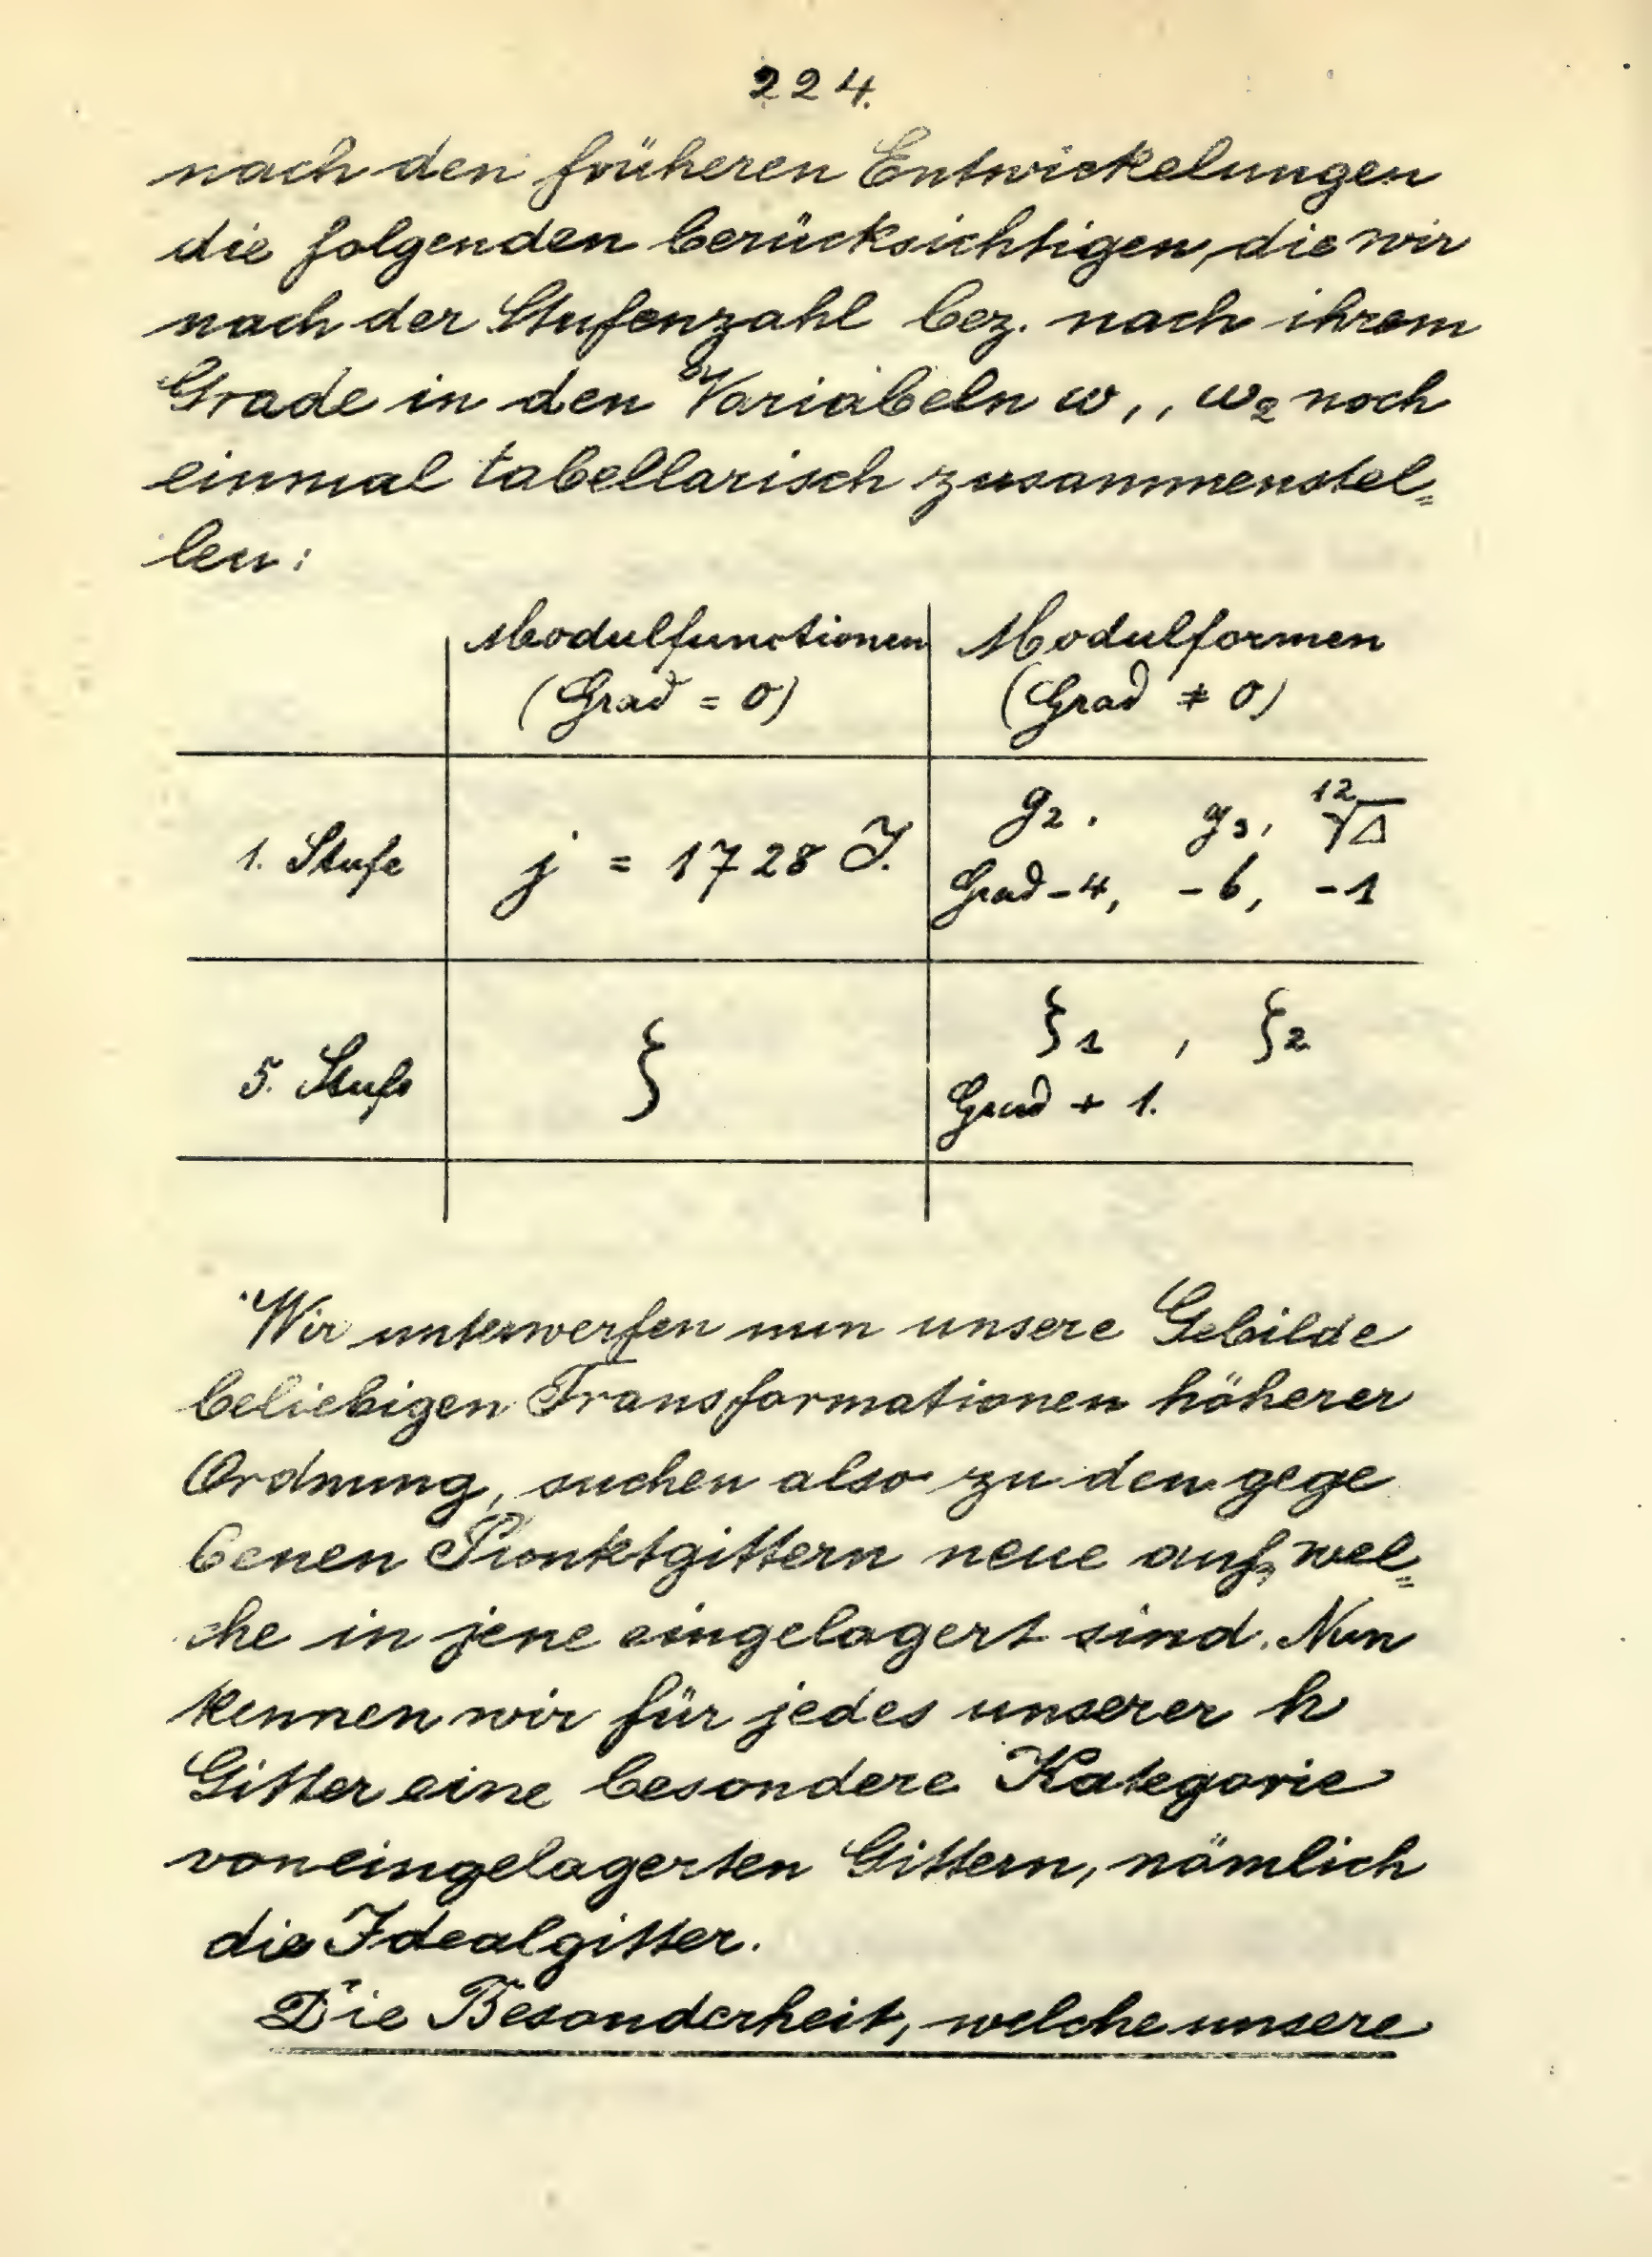 224.
nach den früheren Entwickelungen
die folgenden berücksichtigen, die wir
nach der Stufenzahl bez. nach ihrem
Grade in den Variabeln ω₁, ω₂ noch
einmal tabellarisch zusammenstel=
len:
Modulfunctionen Modulformen
(Grad = 0) (Grad ≠ 0)
1. Stufe j = 1728 J. g₂, g₃, ¹²√Δ
Grad -4, -6, -1
5. Stufe ξ ξ₁, ξ₂
Grad + 1.
Wir unterwerfen nun unsere Gebilde
beliebigen Transformationen höherer
Ordnung, suchen also zu den gege
benen Punktgittern neue auf, wel=
che in jene eingelagert sind. Nun
kennen wir für jedes unserer h
Gitter eine besondere Kategorie
von eingelagerten Gittern, nämlich
die Idealgitter.
Die Besonderheit, welche unsere